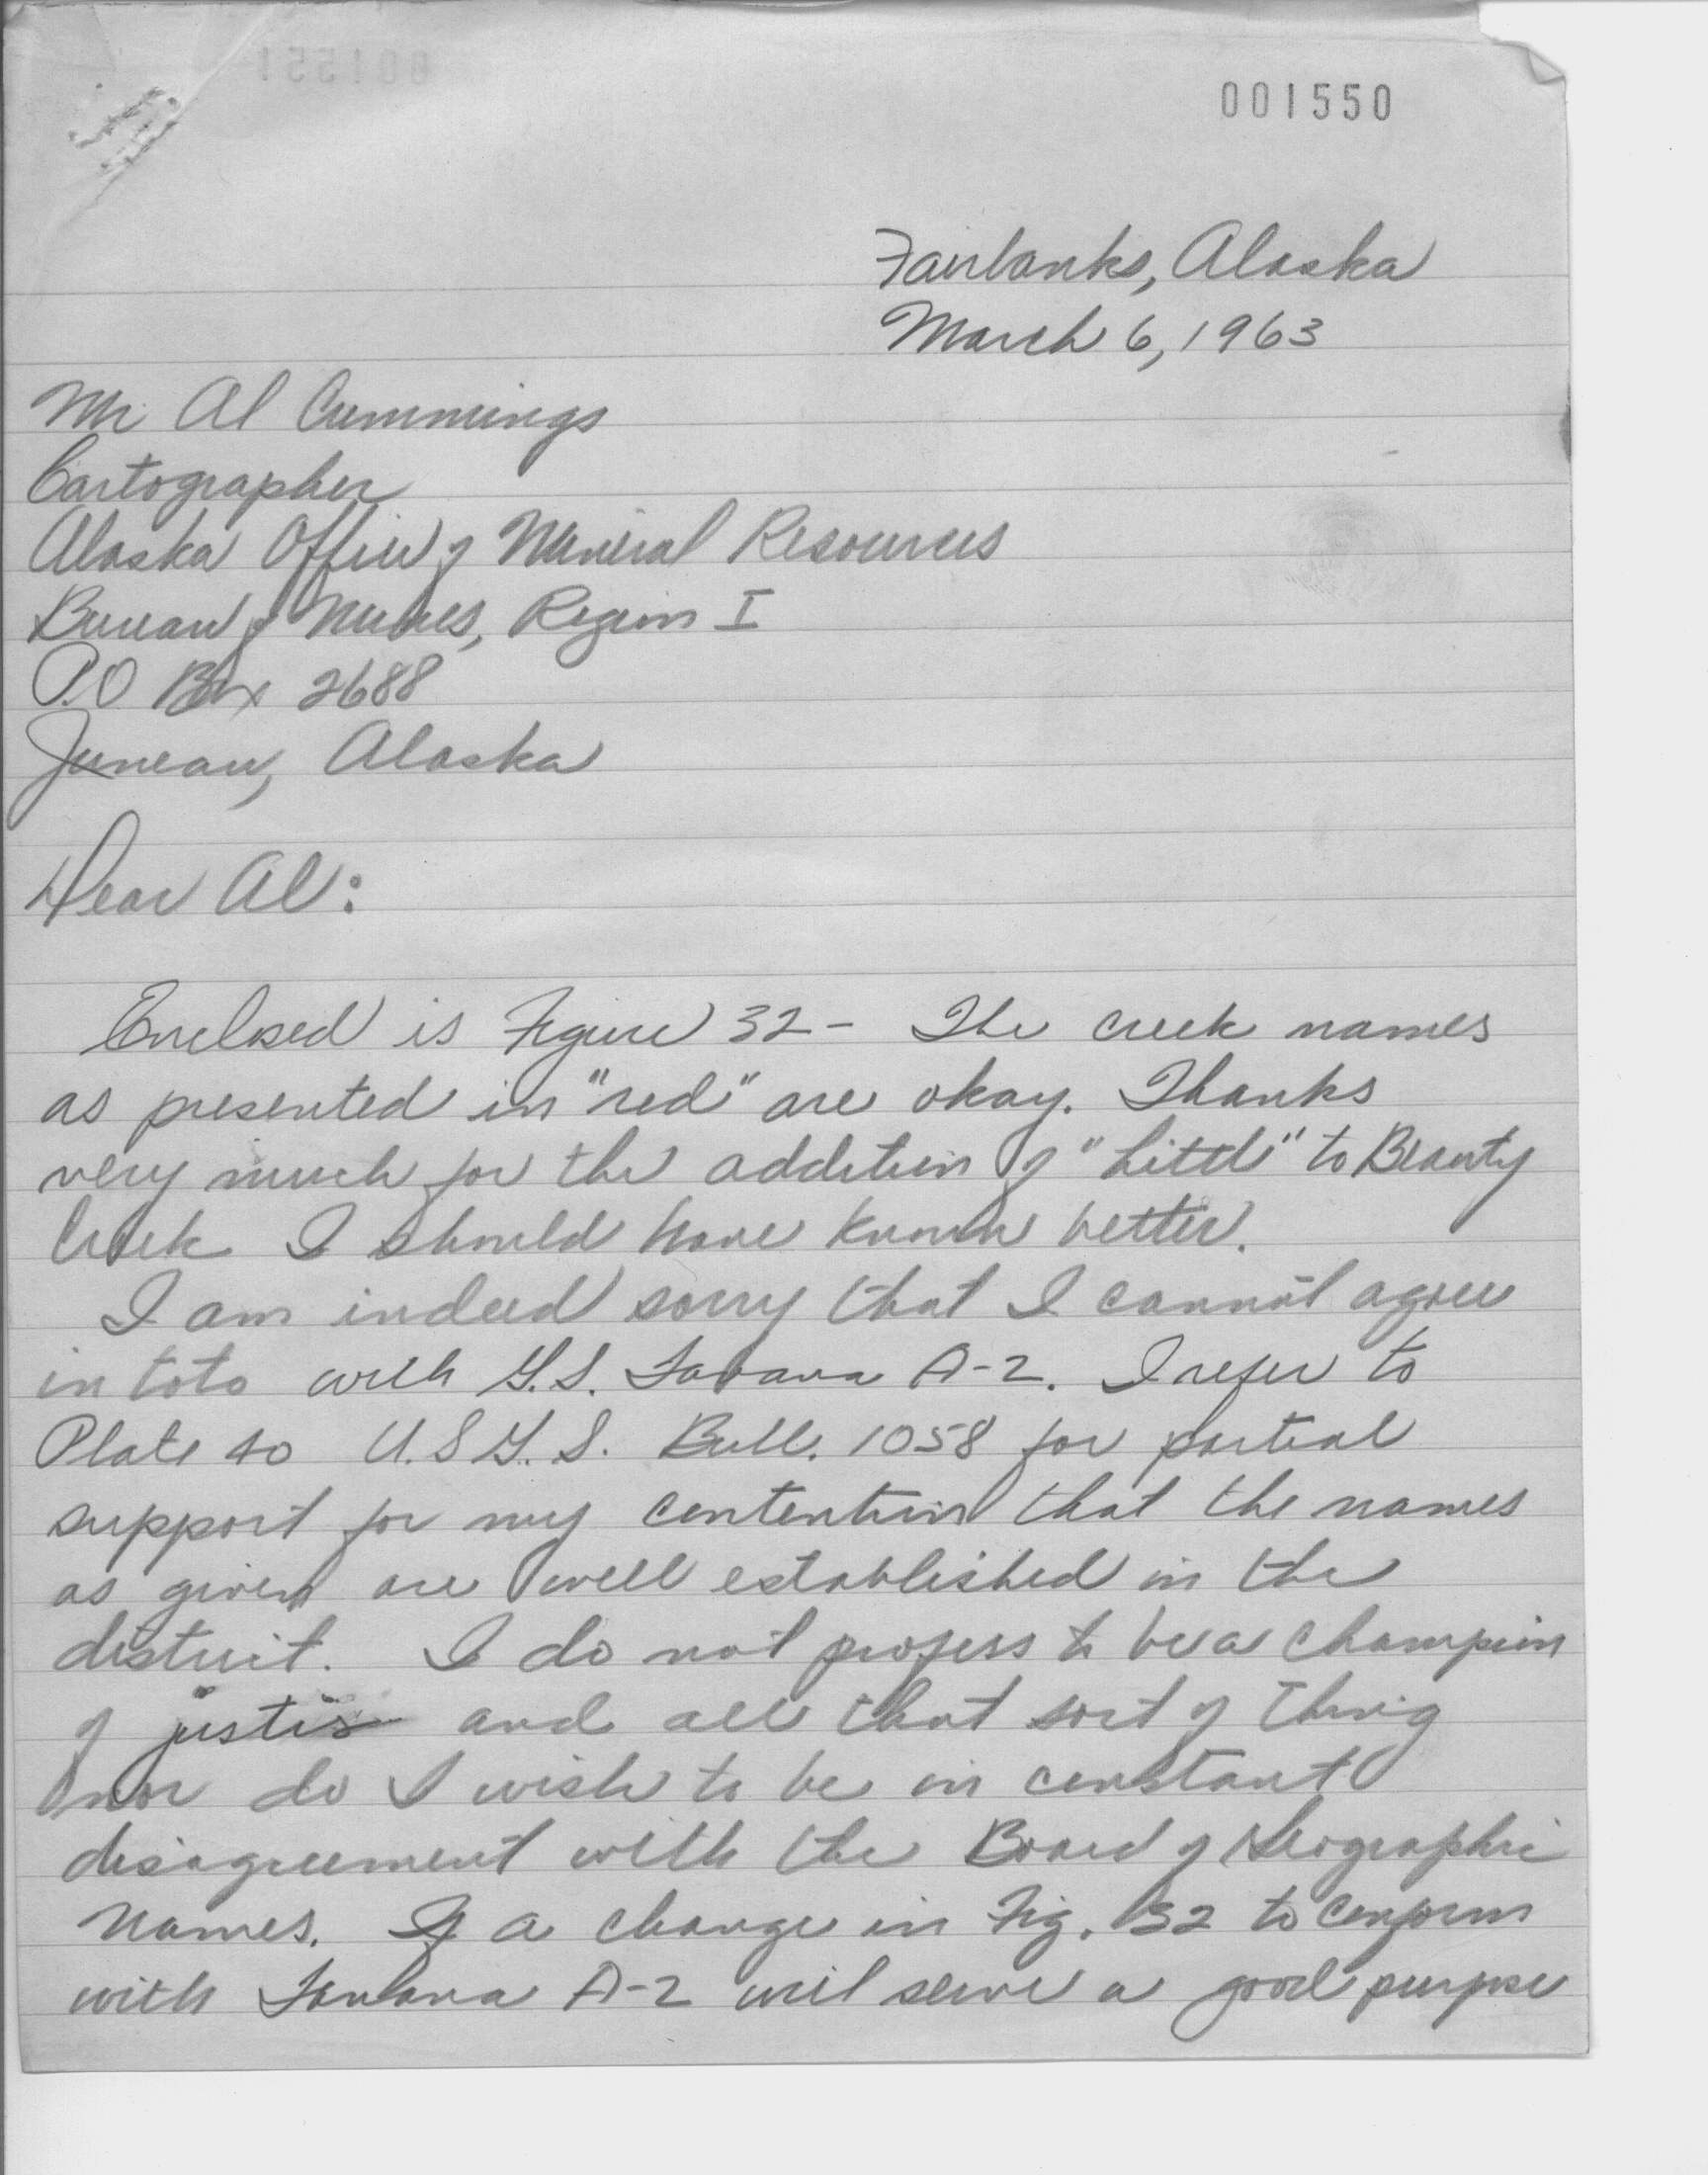 001551
001550
Fairbanks, Alaska
March 6, 1963
Mr Al Cummings
Cartographer
Alaska Office of Mineral Resources
Bureau of Mines, Region I
P.O Box 2688
Juneau, Alaska
Dear Al:
Enclosed is Figure 32 - The creek names
as presented in "red" are okay. Thanks
very much for the addition of "Little" to Beauty
Creek I should have known better.
I am indeed sorry that I cannot agree
in toto with G.S. Tanana A-2. I refer to
Plate 40 U.S G.S. Bull. 1058 for partial
support for my contention that the names
as given are well established in the
district. I do not profess to be a champion
of justis and all that sort of thing
nor do I wish to be in constant
disagreement with the Board of Geographic
Names. If a change in Fig. 32 to conform
with Tanana A-2 will serve a good purpose